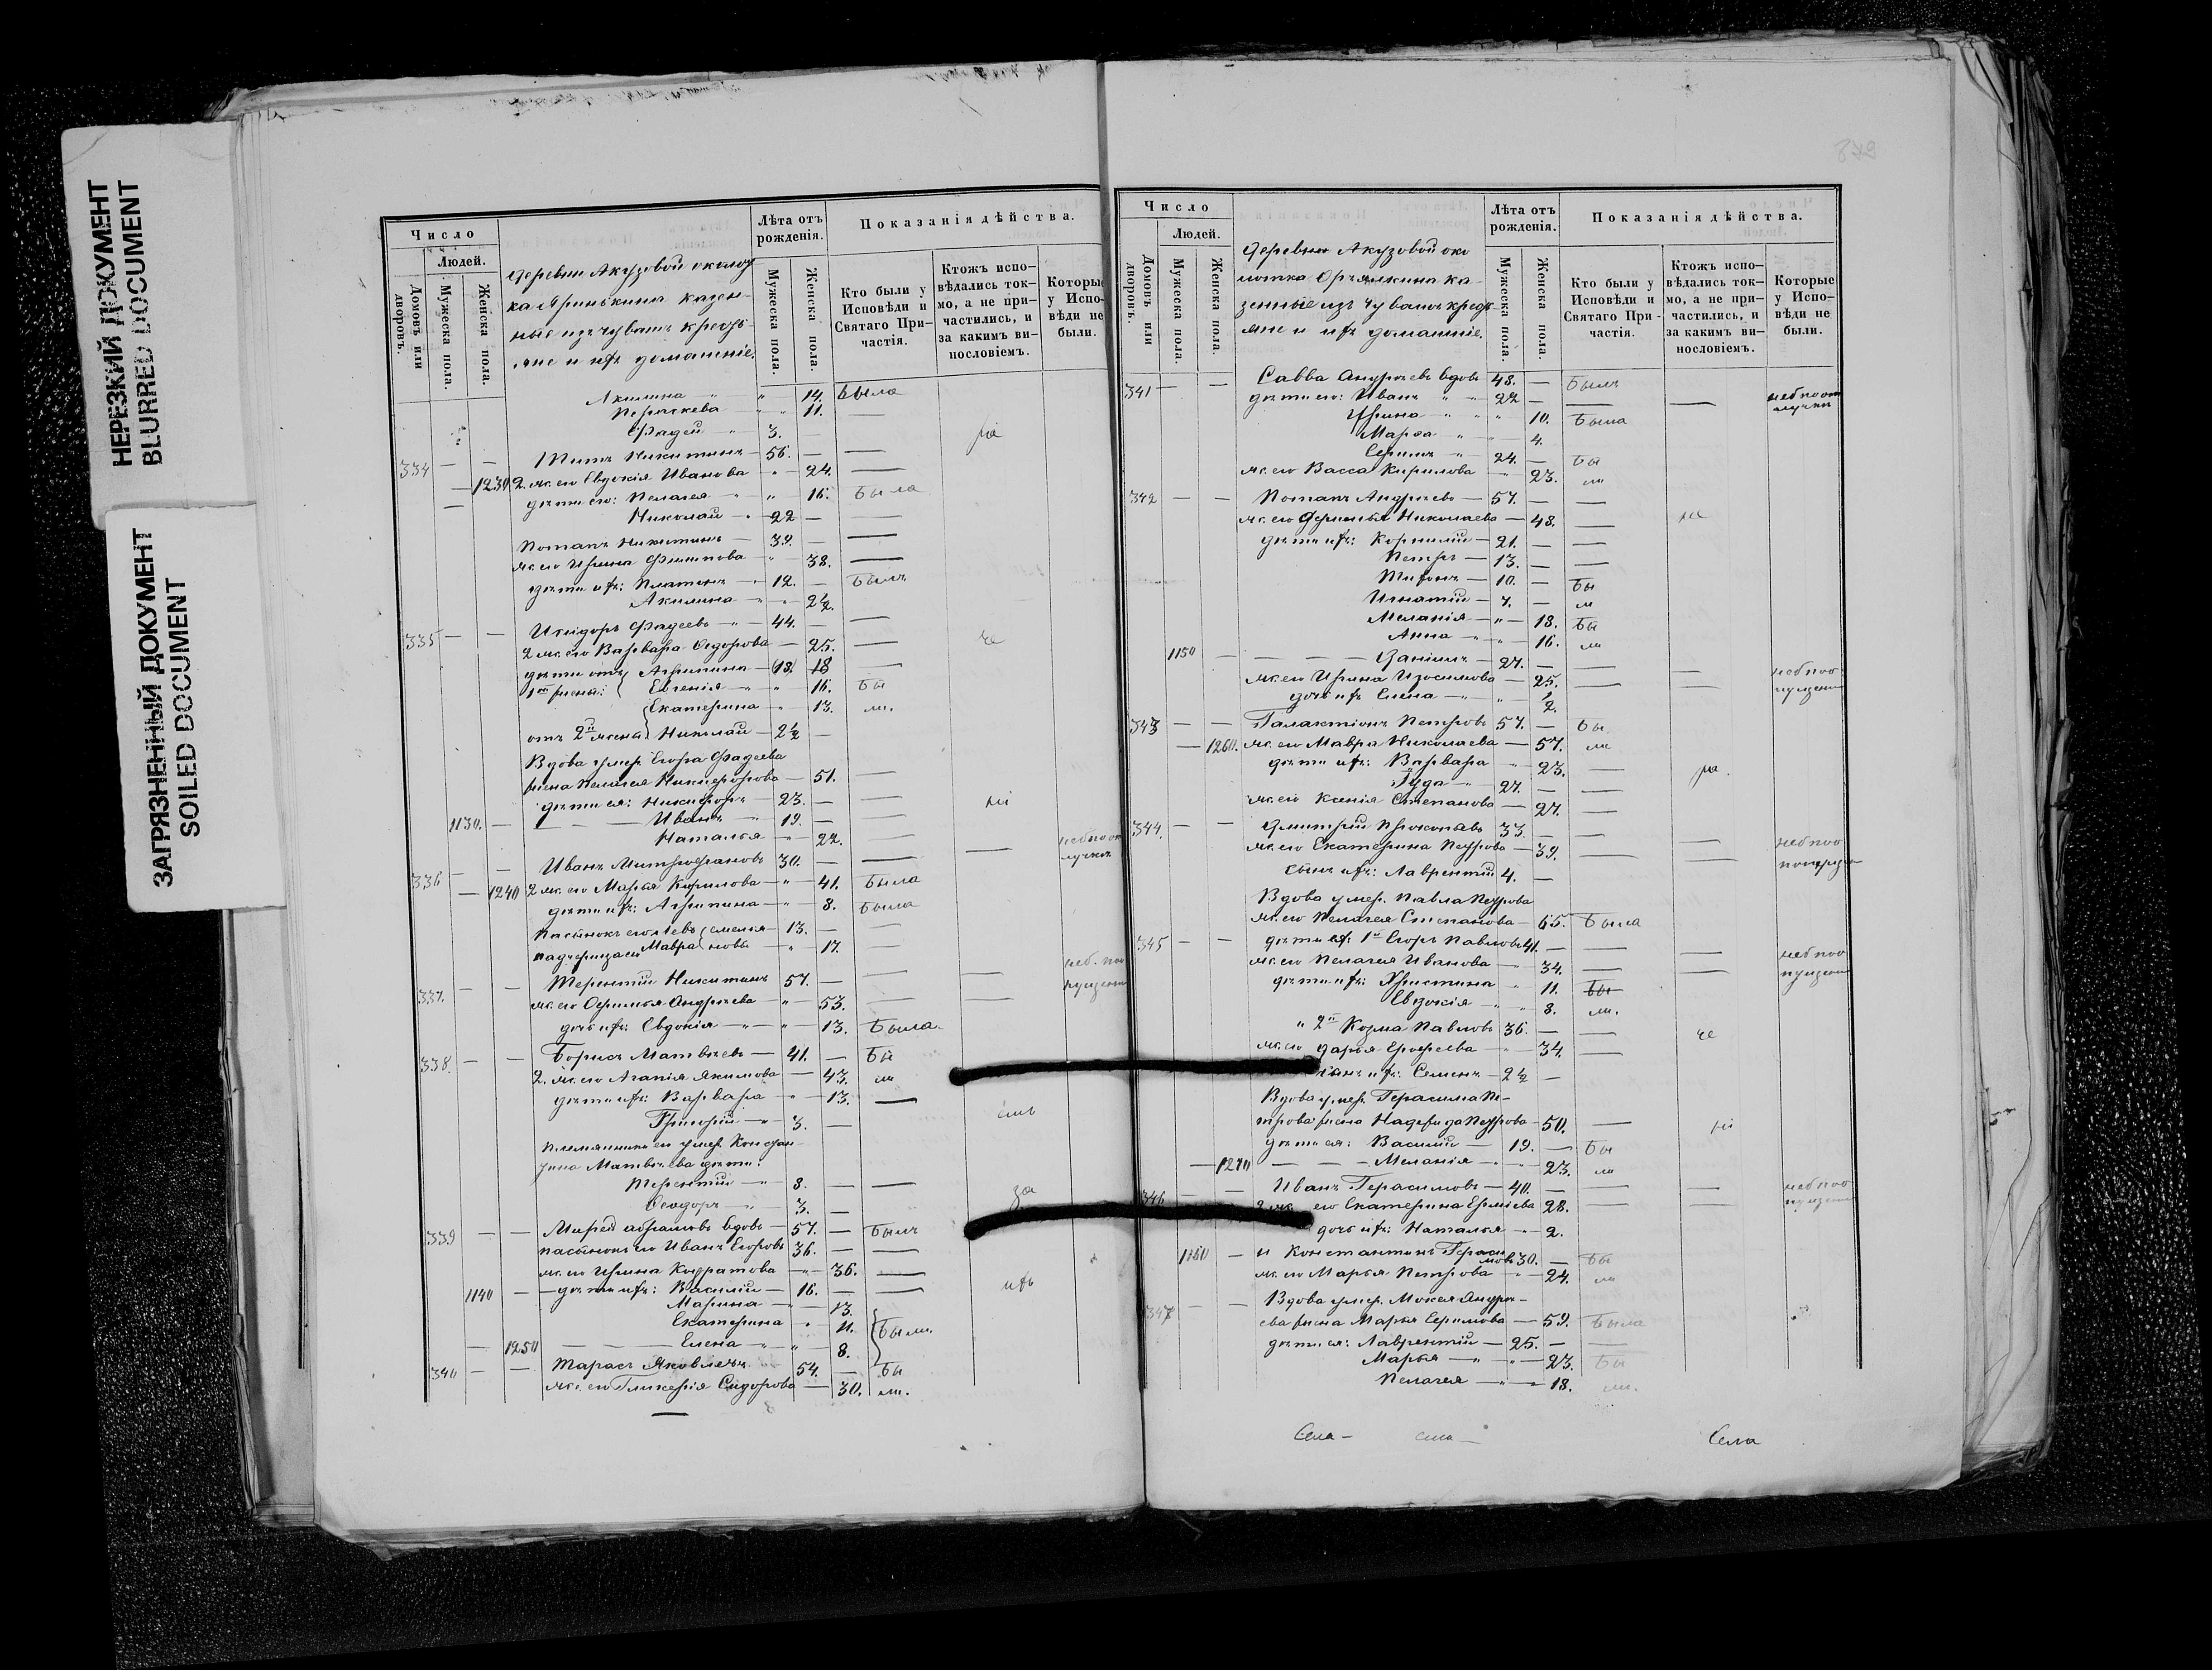 НЕРЕЗКИЙ ДОКУМЕНТ
BLURRED DOCUMENT
ЗАГРЯЗНЕННЫЙ ДОКУМЕНТ
SOILED DOCUMENT
Число
Людей.
Домовъ или дворовъ.
Мужеска пола.
Женска пола.
деревни Акузовой
казен-
ные изъ чувашъ кресть-
яне и ихъ домашніе.
Лѣта отъ рожденія.
Мужеска пола.
Женска пола.
Показанія дѣйства.
Кто были у Исповѣди и Святаго При-частія.
Ктожъ испо-вѣдались ток-мо, а не при-частились, и за какимъ ви-нословіемъ.
Которые у Испо-вѣди не были.
Акилина 14. Была
Параскева 11.
Фадей 3.
334 Титъ Никитинъ 56.
1230 2 ж. его Евдокія Иванова 24.
дѣти его: Пелагея 16. Была
Николай 22
Потапъ Никитинъ 39.
ж. его Ирина Филипова 38.
дѣти ихъ: Платонъ 12. Былъ
Акилина 2½.
335 Исидоръ Фадеевъ 44.
2 ж. его Варвара Сидорова 25. не
дѣти отъ 1ой жены: Агрипина 18. 18
Евгенія 16. Бы
Екатерина 13. ли.
отъ 2й жены Николай 2½
Вдова умер. Егора Фадеева
жена Пелагея Никифорова 51.
дѣти ея: Никифоръ 23. ni
1130. Иванъ 19.
Наталья 22.
336 Иванъ Митрофановъ 30.
1240 2 ж. его Марья Кирилова 41. Была
дѣти ихъ: Агрипина 8. Была
пасынокъ его Левъ 13.
Мавра 17.
337. Терентій Никитинъ 57.
ж. его Офимья Андреева 53.
дочь ихъ: Евдокія 13. Была.
338. Борисъ Матвѣевъ 41. Бы
2. ж. его Агапія Якимова 43. ли
дѣти ихъ: Варвара 13.
Григорій 3.
племянники его умер. Констан-
тина Матвѣева дѣти:
Терентій 8.
Ѳеодоръ 3. за
339 вдовъ 57. Былъ
пасынокъ его Иванъ Егоровъ 36.
ж. его Ирина Кодратова 36.
1140 дѣти ихъ: Василій 16. ихъ
Марина 13.
Екатерина 11. Были.
1250 Елена 8.
340 Тарасъ Яковлевъ 54. Бы
ж. его Гликерія Сидорова 30. ли.
879
Число
Людей.
Домовъ или дворовъ.
Мужеска пола.
Женска пола.
деревни Акузовой око
лотка ка-
зенные изъ чувашъ кресть-
яне и ихъ домашніе.
Лѣта отъ рожденія.
Мужеска пола.
Женска пола.
Показанія дѣйства.
Кто были у Исповѣди и Святаго При-частія.
Ктожъ испо-вѣдались ток-мо, а не при-частились, и за какимъ ви-нословіемъ.
Которые у Испо-вѣди не были.
341 Савва Андреевъ вдовъ 48. Былъ
дѣти его: Иванъ 22
Ирина 10. Была
Марѳа 4.
24. Бы
ж. его Васса Кирилова 23. ли
342 Потапъ Андреевъ 57.
ж. его Николаева 48.
дѣти ихъ: Корнилій 21.
Петръ 13.
10. Бы
Игнатій 7. ли
Меланія 18. Бы
Анна 16. ли
1150 Даніилъ 27.
ж. его Ирина Изосимова 25.
дочь ихъ Елена ½.
343 Галактіонъ Петровъ 57. Бы
1260. ж. его Мавра Николаева 57. ли
дѣти ихъ: Варвара 23.
Іуда 27.
ж. его Ксенія Степанова 27.
344. Дмитрій Прокопьевъ 33.
ж. его Екатерина Петрова 39.
сынъ ихъ: Лаврентій 4.
Вдова умер. Павла Петрова
ж. его Пелагея Степанова 65. Была
345 дѣти ея: 1й Егоръ Павловъ 41.
ж. его Пелагея Иванова 34.
дѣти ихъ: Христина 11. Бы
Евдокія 8. ли.
2й Козма Павловъ 36. не
ж. его Дарья Ерофеева 34.
ихъ: Семенъ 2½
Вдова умер. Герасима Пе-
трова жена Надежда Петрова 50.
дѣти ея: Василій 19. Бы
1270 Меланія 23. ли
346 Иванъ Герасимовъ 40.
его Екатерина 28.
дочь ихъ: Наталья 2.
1160 Константинъ Гераси
мовъ 30. Бы
ж. его Марья Петрова 24. ли
347 Вдова умер. Мокея Андре-
ева жена Марья Ефимова 59. Была
дѣти ея: Лаврентій 25.
Марья 23. Бы
Пелагея 18. ли.
Села
Села